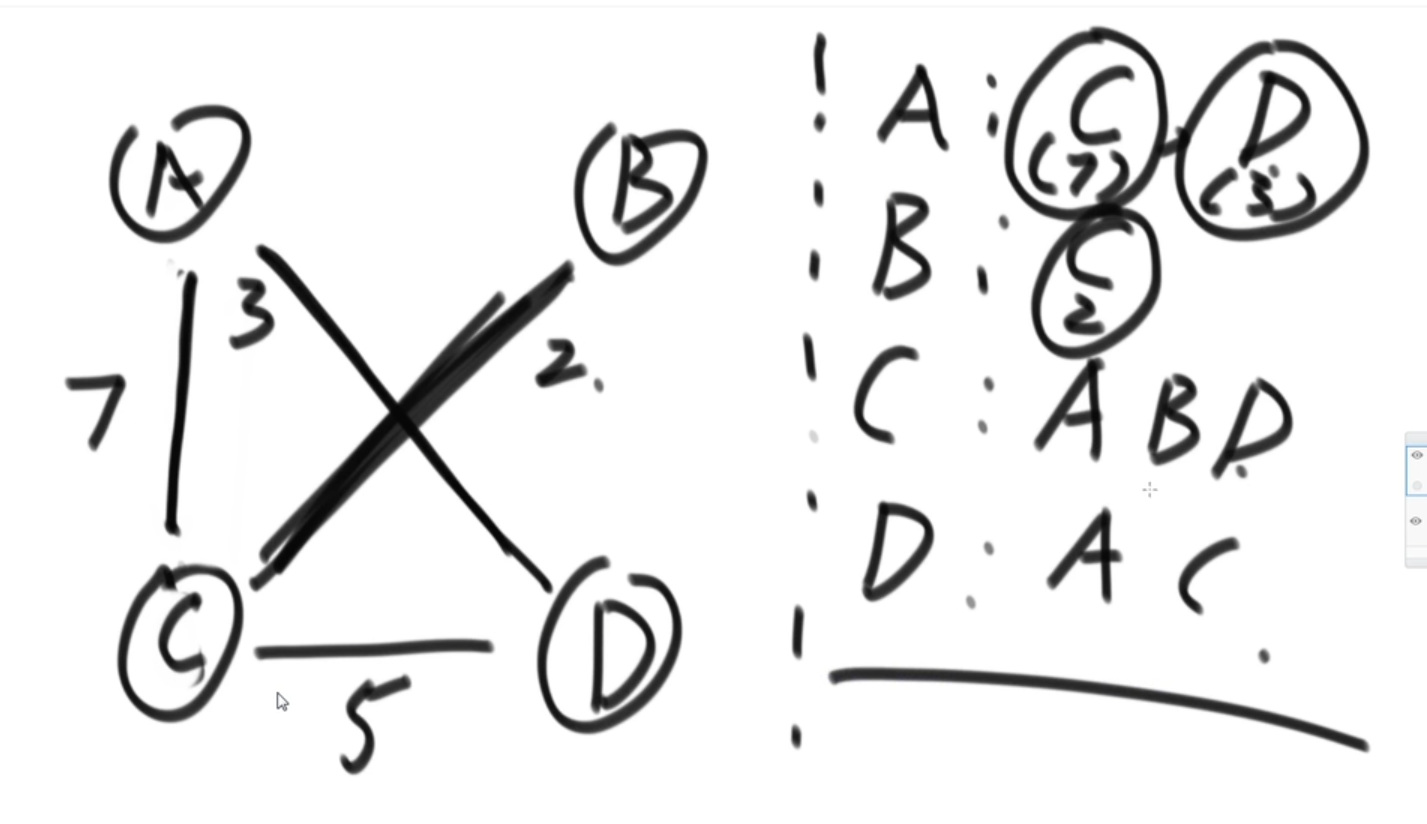 A
B
3
2.
7
C
D
5
A : C (7) - D (3)
B : C 2
C : A B D
D : A C